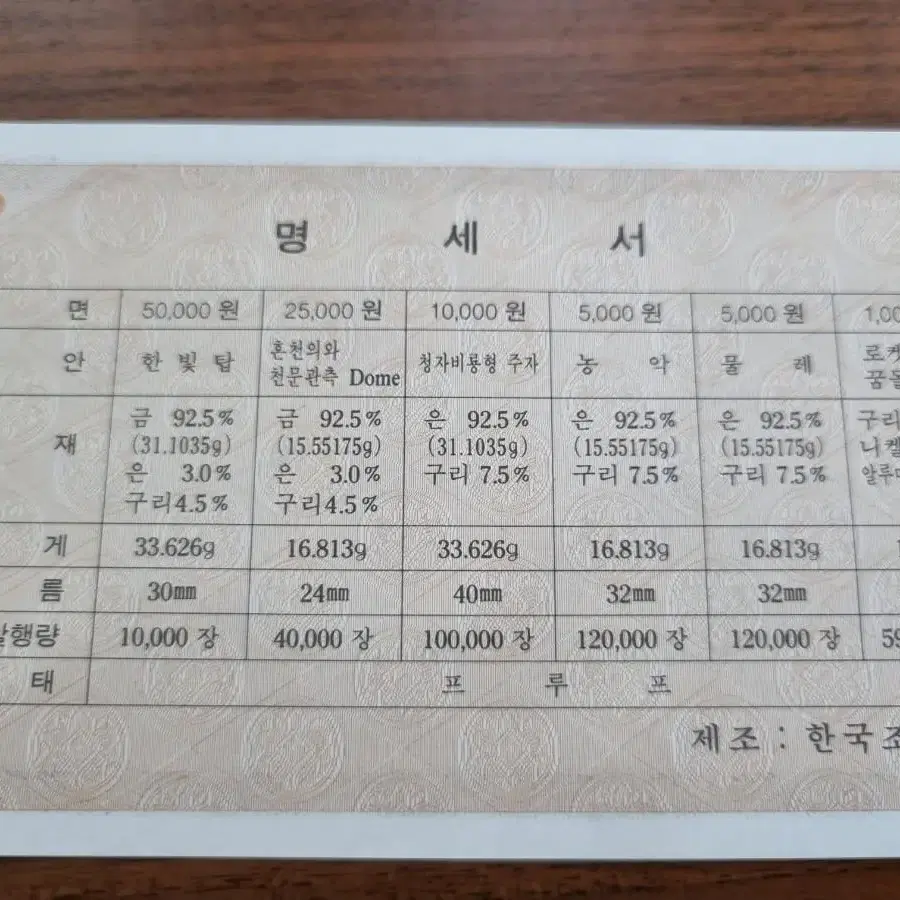 명 세 서
면 50,000 원 25,000 원 10,000 원 5,000 원 5,000 원 1,00
안 한 빛 탑 혼천의와 천문관측 Dome 청자비룡형 주자 농 악 물 레 로켓 꿈돌
재 금 92.5% 금 92.5% 은 92.5% 은 92.5% 은 92.5% 구리
(31.1035g) (15.55175g) (31.1035g) (15.55175g) (15.55175g) 니켈
은 3.0% 은 3.0% 구리 7.5% 구리 7.5% 구리 7.5% 알루미
구리4.5% 구리4.5%
게 33.626g 16.813g 33.626g 16.813g 16.813g
름 30mm 24mm 40mm 32mm 32mm
발행량 10,000 장 40,000 장 100,000 장 120,000 장 120,000 장 59
태 프 루 프
제조 : 한국조